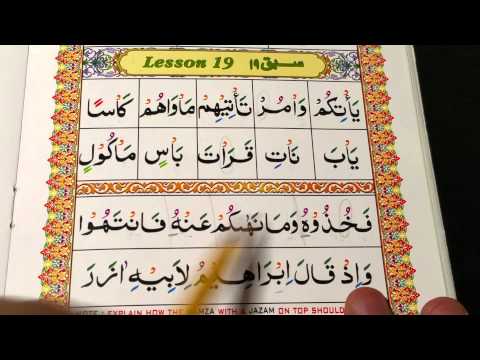 Lesson 19 سبق ۱۹
يَأْتِكُمْ وَأْمُرْ تَأْتِيْهِمْ مَأْوَاهُمْ كَأْسًا
يَأْبَ نَأْتِ قَرَأْتَ بَأْسٍ مَأْكُوْلٍ
فَخُذُوْهُ وَمَا نَهٰىكُمْ عَنْهُ فَانْتَهُوْا
وَاِذْ قَالَ اِبْرَاهِيْمُ لِاَبِيْهِ اٰزَرَ
EXPLAIN HOW THE HAMZA WITH A JAZAM ON TOP SHOULD